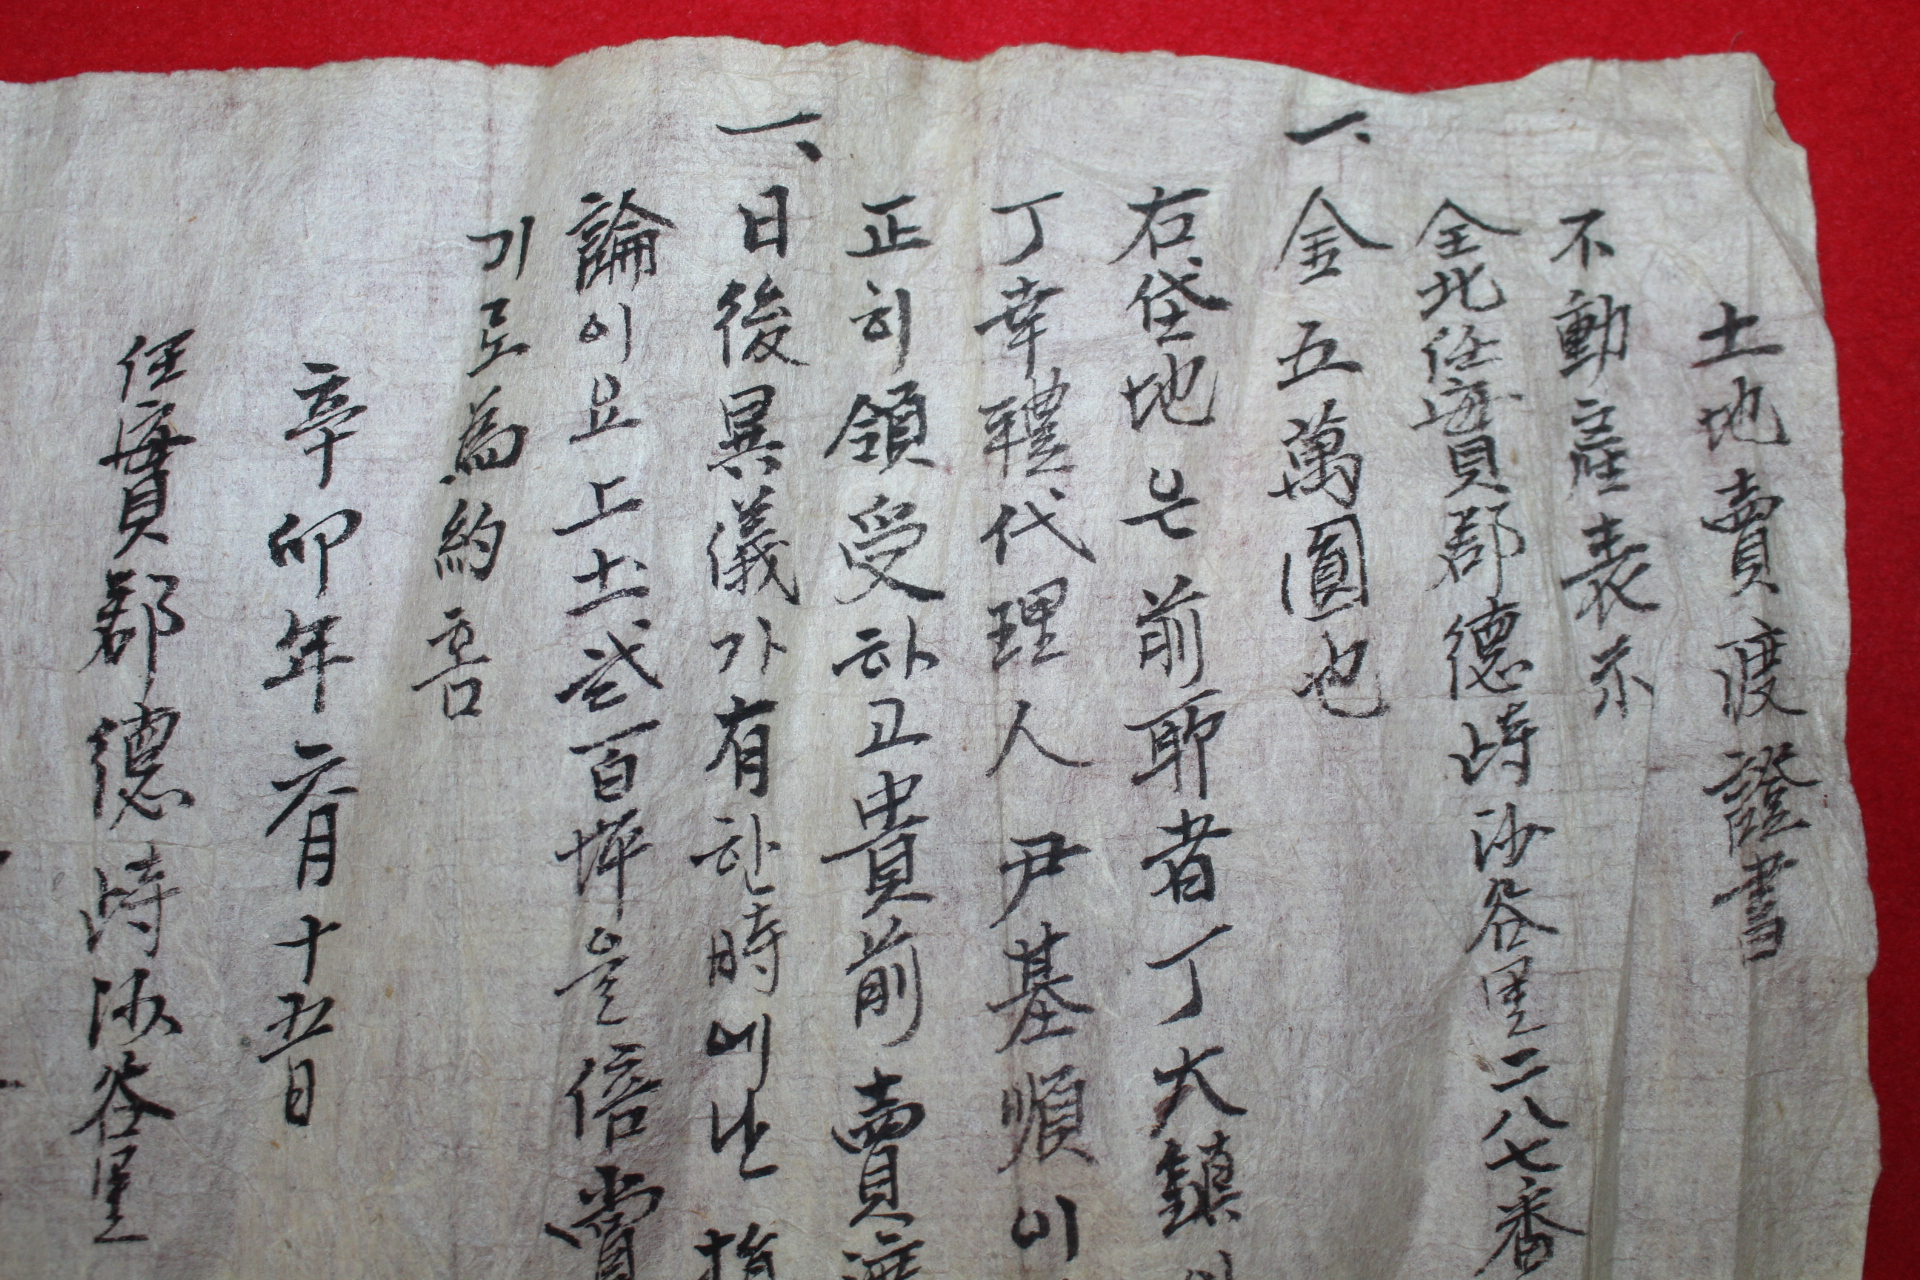 土地賣渡證書
不動產表示
全北任實郡德峙沙谷里二八七番
一、金五萬圓也
右垈地는前耶者丁大鎭이
丁幸禮代理人尹基順이
正히領受하고貴前賣渡
一、日後異儀가有한時에난
論이요上土弐百坪을倍賞
기로爲約홈
辛卯年六月十五日
任實郡德峙沙谷里